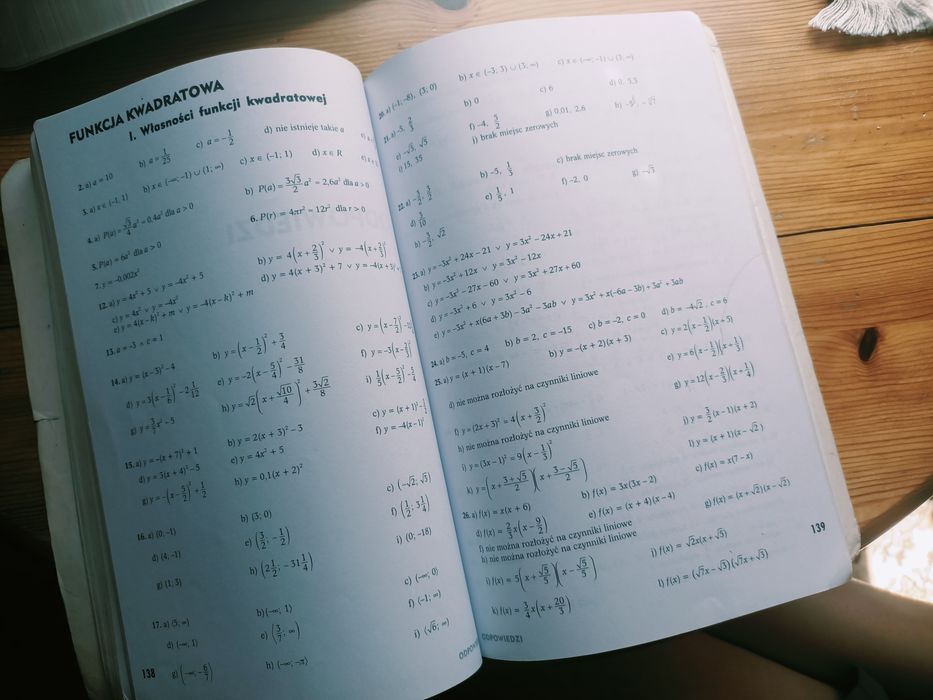 FUNKCJA KWADRATOWA
I. Własności funkcji kwadratowej
2. a) a = 10 b) a = 1/25 c) a = -1/2 d) nie istnieje takie a
3. a) x ∈ (-1; 1) b) x ∈ (-∞; -1) ∪ (1; ∞) c) x ∈ (-1; 1) d) x ∈ R
4. a) P(a) = √3/4 a² ≈ 0,4a² dla a > 0 b) P(a) = 3√3/2 a² ≈ 2,6a² dla a > 0
5. P(a) = 6a² dla a > 0 6. P(r) = 4πr² ≈ 12r² dla r > 0
7. y = -0,002x²
12. a) y = 4x² + 5 ∨ y = -4x² + 5 b) y = 4(x + 2/3)² ∨ y = -4(x + 2/3)²
c) y = 4x² ∨ y = -4x² d) y = 4(x + 3)² + 7 ∨ y = -4(x + 3)²
e) y = 4(x - k)² + m ∨ y = -4(x - k)² + m
13. a = -3 ∧ c = 1
14. a) y = (x - 3)² - 4 b) y = (x - 1/2)² + 3/4 c) y = (x - 7/2)²
d) y = 3(x - 1/6)² - 2 1/12 e) y = -2(x - 5/4)² - 31/8 f) y = -3(x - 2/3)²
g) y = 3/7 x² - 5 h) y = √2(x + √10/4)² + 3√2/8 i) 1/5(x - 5/2)² - 5/4
15. a) y = -(x + 7)² + 1 b) y = 2(x + 3)² - 3 c) y = (x + 1)² - 1/2
d) y = 5(x + 4)² - 3 e) y = 4x² + 5 f) y = -4(x - 1)²
g) y = -(x - 5/2)² + 1/2 h) y = 0,1(x + 2)²
16. a) (0; -1) b) (3, 0) c) (-√2; √3)
d) (4; -1) e) (3/2; -1/2) f) (1/2; 3 1/4)
g) (1; 3) h) (2 1/2; -31 1/4) i) (0; -18)
17. a) (5; ∞) b) (-∞; 1) c) (-∞; 0)
d) (-∞; 1) e) (3/7; ∞) f) (-1; ∞)
g) (-∞; -6/7) h) (-∞; -π) i) (√6; ∞)
138
ODPOWIE
20. a) (-1; -8), (3; 0) b) x ∈ (-3; 3) ∪ (3; ∞) c) x ∈ (-∞; -1) ∪ (1; ∞)
21. a) -5, 2/3 b) 0 c) 6 d) 0, 5,5
e) -√3, √5 f) -4, 5/2 g) 0,01, 2,6
i) 15, 35 j) brak miejsc zerowych
22. a) -3/2, 3/2 b) -5, 1/3 c) brak miejsc zerowych
d) 3/10 e) 1/5, 1 f) -2, 0 g) -√3
h) -3/2, √2
23. a) y = -3x² + 24x - 21 ∨ y = 3x² - 24x + 21
b) y = -3x² + 12x ∨ y = 3x² - 12x
c) y = -3x² - 27x - 60 ∨ y = 3x² + 27x + 60
d) y = -3x² + 6 ∨ y = 3x² - 6
e) y = -3x² + x(6a + 3b) - 3a² - 3ab ∨ y = 3x² + x(-6a - 3b) + 3a² + 3ab
24. a) b = -5, c = 4 b) b = 2, c = -15 c) b = -2, c = 0 d) b = -4√2, c = 6
25. a) y = (x + 1)(x - 7) b) y = -(x + 2)(x + 3) c) y = 2(x - 1/2)(x + 5)
d) nie można rozłożyć na czynniki liniowe e) y = 6(x - 1/2)(x + 1/3)
f) y = (2x + 3)² = 4(x + 3/2)² g) y = 12(x - 2/3)(x + 1/4)
h) nie można rozłożyć na czynniki liniowe
i) y = (3x - 1)² = 9(x - 1/3)² j) y = 3/2(x - 1)(x + 2)
k) y = (x + 3 + √5/2)(x + 3 - √5/2) l) y = (x + 1)(x - √2)
26. a) f(x) = x(x + 6) b) f(x) = 3x(3x - 2) c) f(x) = x(7 - x)
d) f(x) = 2/3 x(x - 9/2) e) f(x) = (x + 4)(x - 4) g) f(x) = (x + √2)(x - √2)
f) nie można rozłożyć na czynniki liniowe
h) nie można rozłożyć na czynniki liniowe
i) f(x) = 5(x + √5/5)(x - √5/5) j) f(x) = √2x(x + √3)
k) f(x) = 3/4 x(x + 20/3) l) f(x) = (√7x - √3)(√7x + √3)
139
ODPOWIEDZI